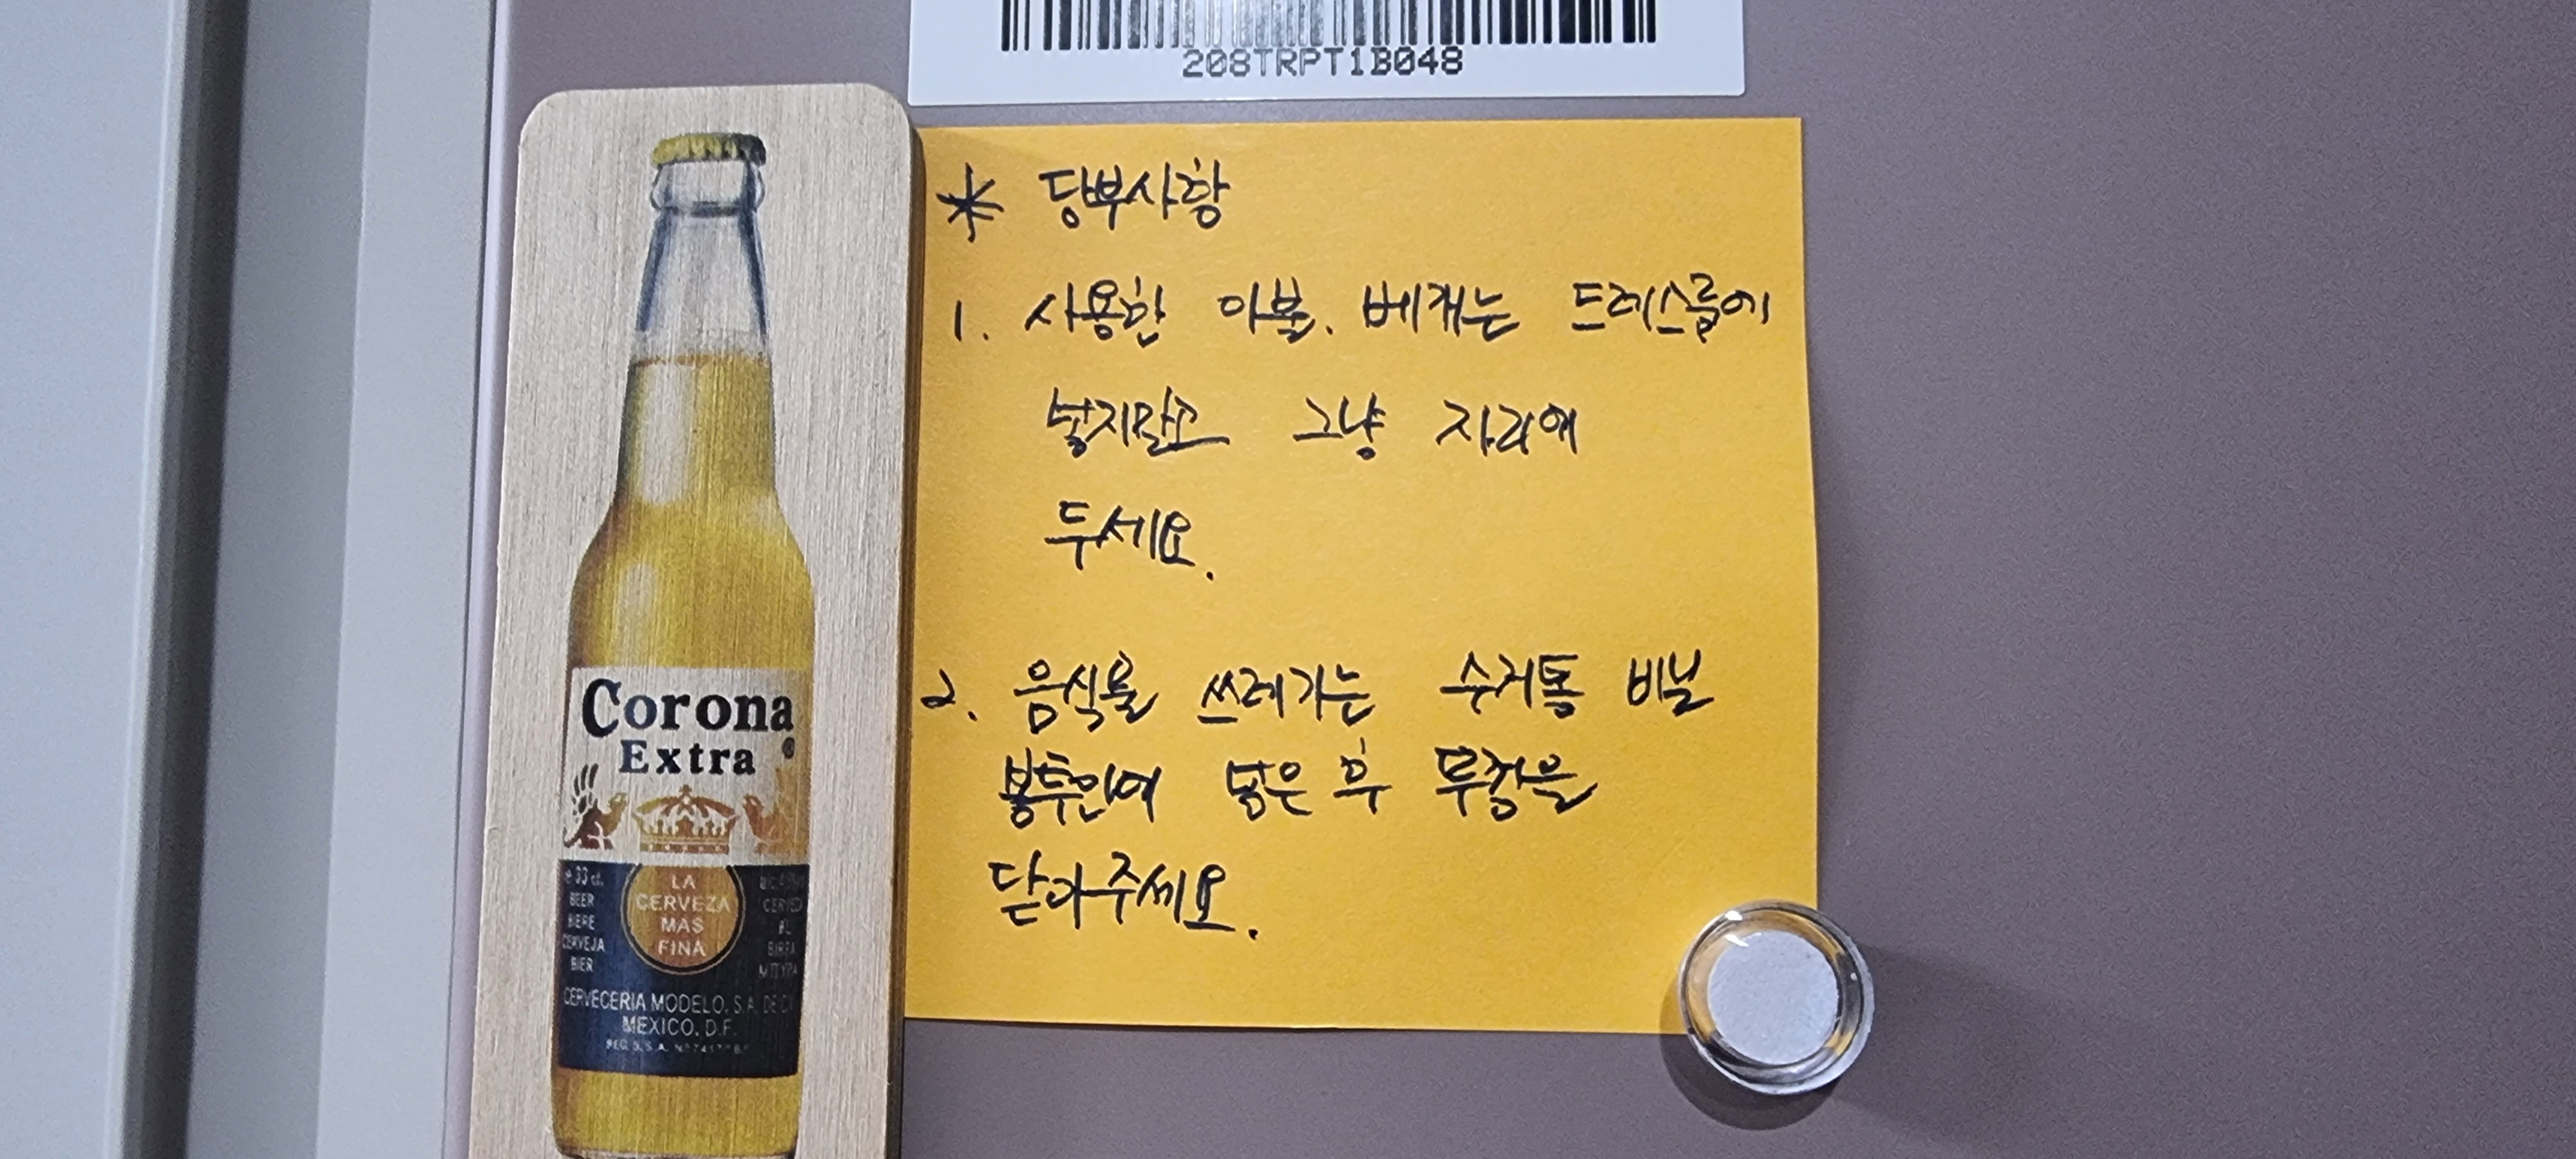 208TRPT1B048
* 당부사항
1. 사용한 이불. 베개는 드레스룸에
넣지말고 그냥 자리에
두세요.
2. 음식물 쓰레기는 수거통 비닐
봉투안에 넣은 후 뚜껑을
닫아주세요.
Corona
Extra
LA
CERVEZA
MAS
FINA
BEER
BIERE
CERVEJA
BIER
CERVECERIA MODELO, S.A. DE C.V.
MEXICO, D.F.